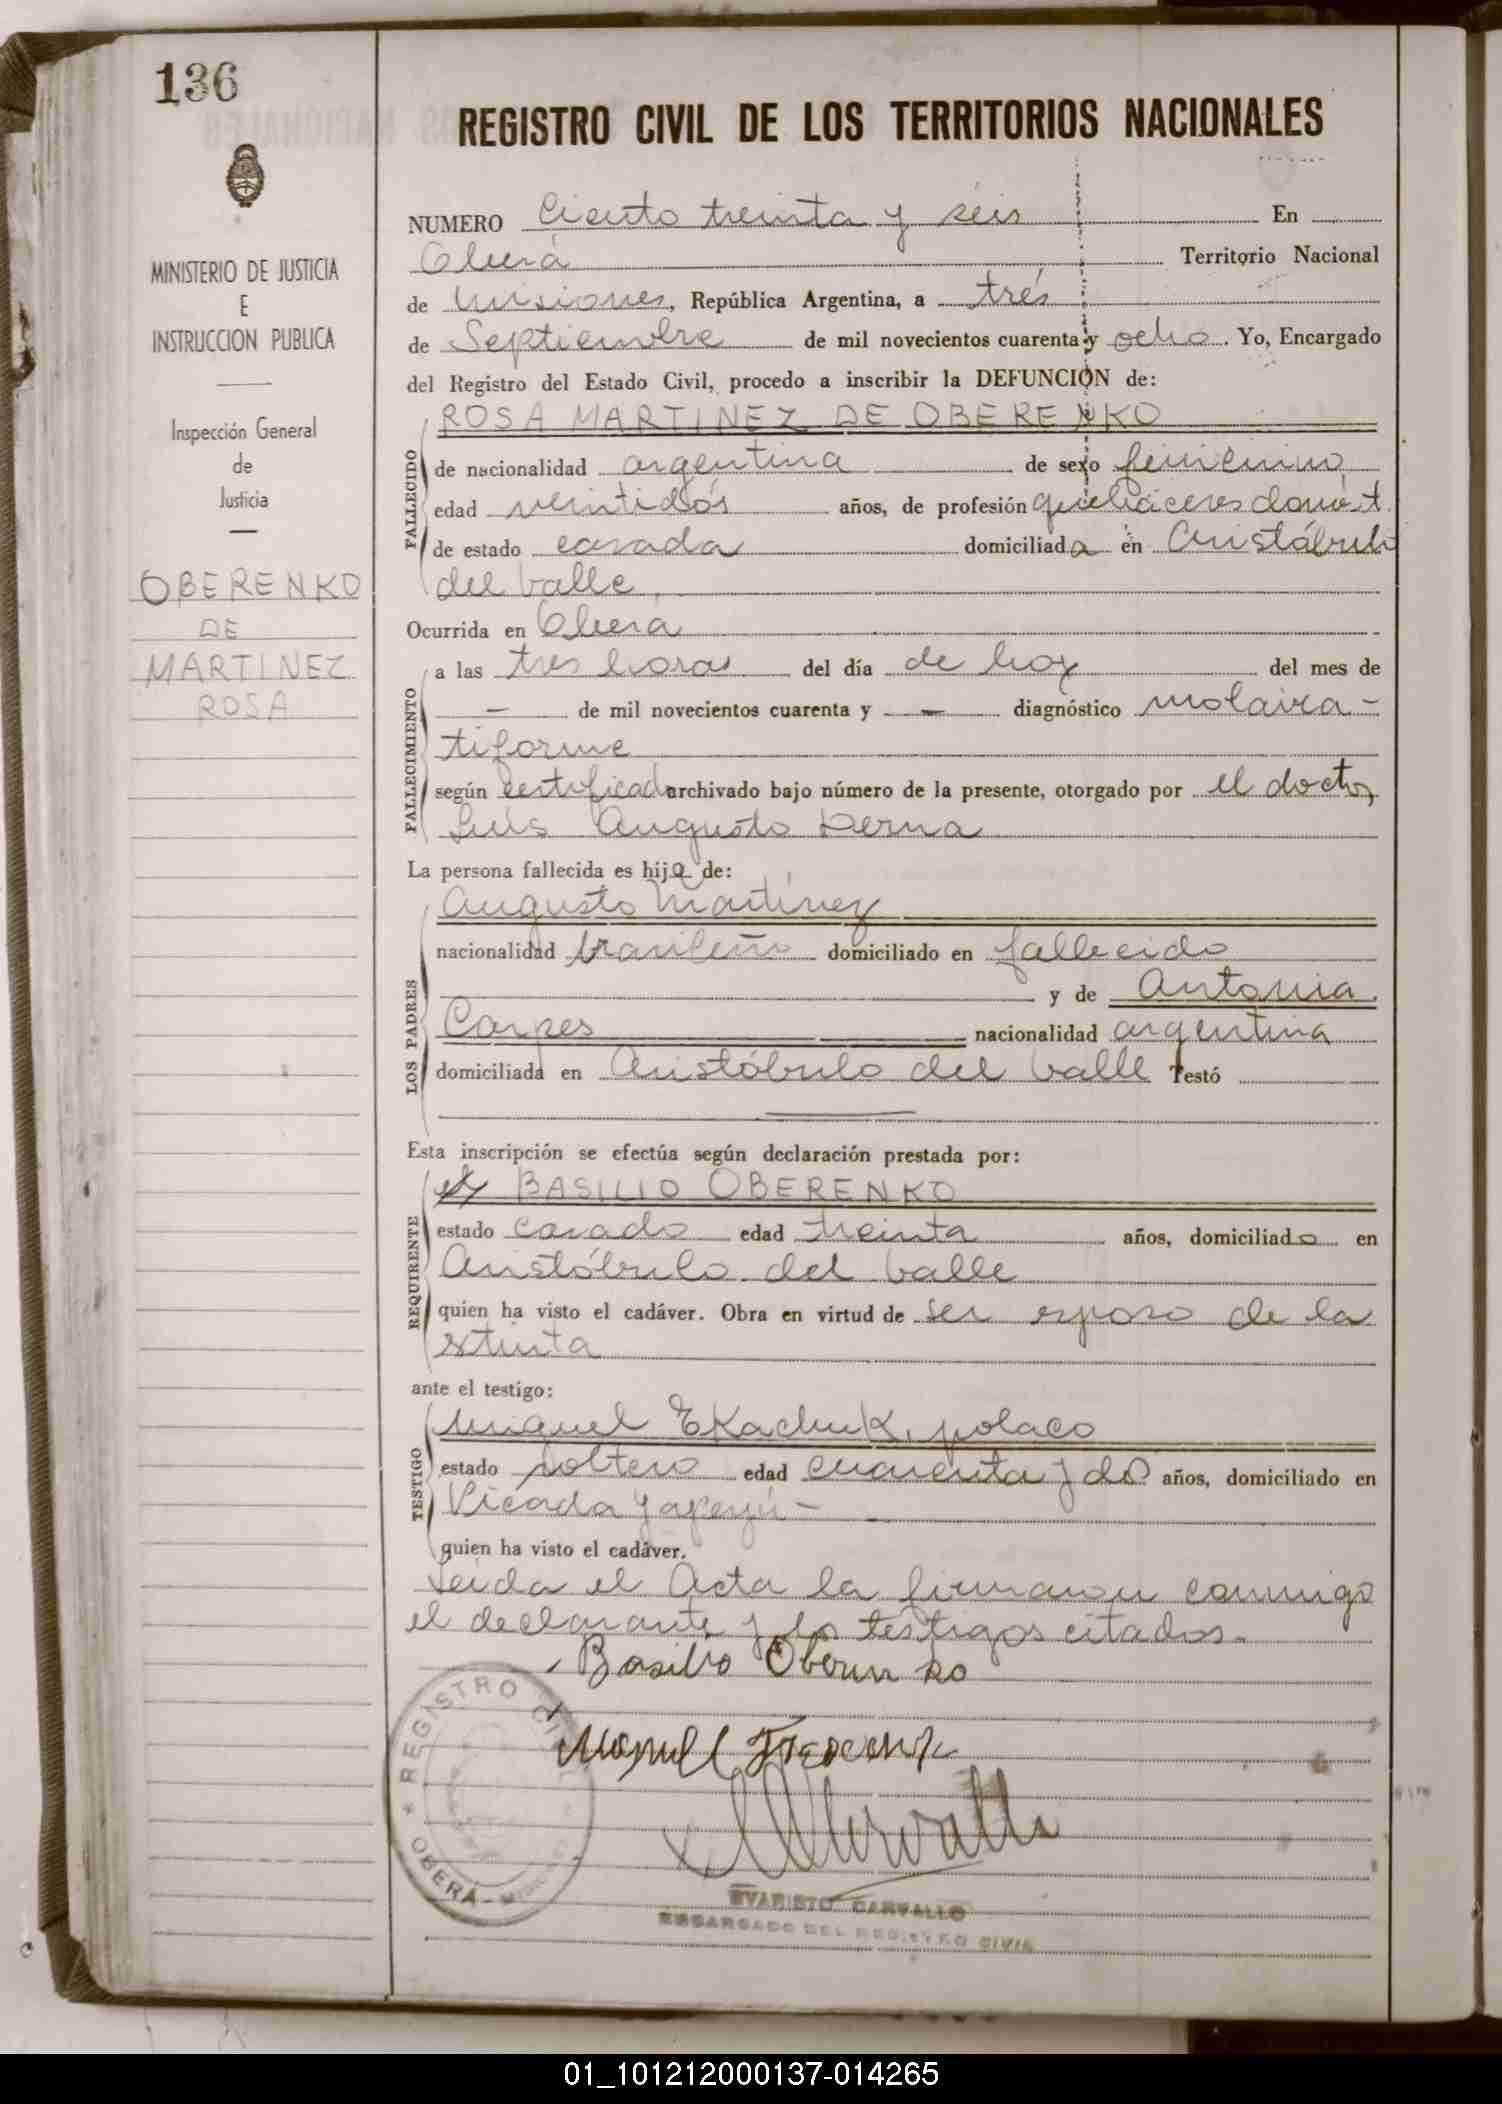 136
REGISTRO CIVIL DE LOS TERRITORIOS NACIONALES
MINISTERIO DE JUSTICIA
E
INSTRUCCION PUBLICA
Inspección General
de
Justicia
OBERENKO
DE
MARTINEZ
ROSA
NUMERO Ciento treinta y séis En
Oberá Territorio Nacional
de Misiones, República Argentina, a trés
de Septiembre de mil novecientos cuarenta y ocho. Yo, Encargado
del Registro del Estado Civil, procedo a inscribir la DEFUNCIÓN de:
ROSA MARTINEZ DE OBERENKO
FALLECIDO
de nacionalidad argentina de sexo femenino
edad veintidós años, de profesión quehaceres domést.
de estado casada domiciliada en Aristóbulo
del Valle,
Ocurrida en Oberá
FALLECIMIENTO
a las tres horas del día de hoy del mes de
— de mil novecientos cuarenta y — diagnóstico
tiforme
según certificado archivado bajo número de la presente, otorgado por el doctor
Luis Augusto Derna
La persona fallecida es hija de:
LOS PADRES
Augusto Martínez
nacionalidad brasileño domiciliado en fallecido
y de Antonia
Carpes nacionalidad argentina
domiciliada en Aristóbulo del Valle Testó
Esta inscripción se efectúa según declaración prestada por:
REQUIRENTE
BASILIO OBERENKO
estado casado edad treinta años, domiciliado en
Aristóbulo del Valle
quien ha visto el cadáver. Obra en virtud de ser esposo de la
extinta
ante el testigo:
TESTIGO
Miguel Tkachuk, polaco
estado soltero edad cuarenta y dos años, domiciliado en
Picada Yapeyú -
quien ha visto el cadáver.
Leida el Acta la firmaron conmigo
el declarante y los testigos citados.-
Basilio Oberenko
REGISTRO CIVIL
OBERÁ - MISIONES
EVARISTO CARVALLO
ENCARGADO DEL REGISTRO CIVIL
01_101212000137-014265